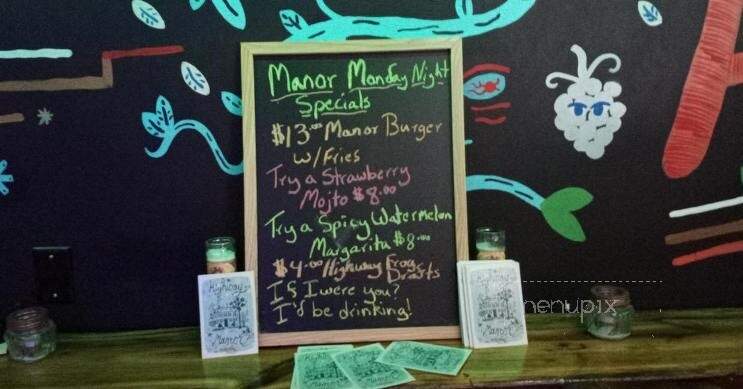 Manor Monday Night
Specials
$13.00 Manor Burger
w/Fries
Try a Strawberry
Mojto $8.00
Try a Spicy Watermelon
Margarita $8.00
$4.00 Highway Frog
Drafts
If I were you?
I'd be drinking!
Highway
Manor
Highway
Manor
menupix